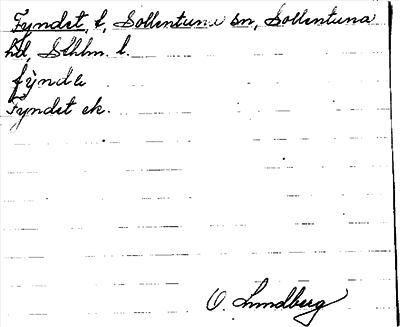 Fyndet, t, Sollentuna sn, Sollentuna
hd, Sthlm. l.
fýnde
Fyndet ek.
O. Lundberg